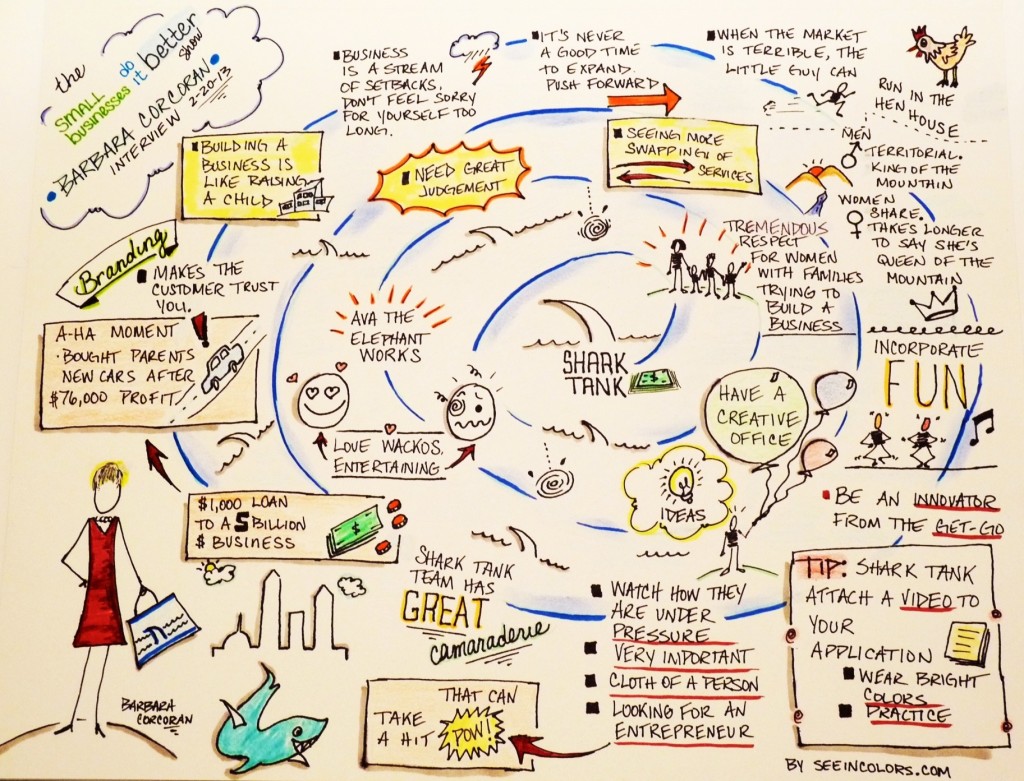 the
small
businesses do
it better
show
BARBARA CORCORAN
INTERVIEW 2-20-13
BUSINESS
IS A STREAM
OF SETBACKS,
DON'T FEEL SORRY
FOR YOURSELF TOO
LONG.
IT'S NEVER
A GOOD TIME
TO EXPAND.
PUSH FORWARD
WHEN THE MARKET
IS TERRIBLE, THE
LITTLE GUY CAN
RUN IN THE
HEN HOUSE
BUILDING A
BUSINESS IS
LIKE RAISING
A CHILD
NEED GREAT
JUDGEMENT
SEEING MORE
SWAPPING OF
SERVICES
MEN
TERRITORIAL.
KING OF THE
MOUNTAIN
WOMEN
SHARE.
TAKES LONGER
TO SAY SHE'S
QUEEN OF THE
MOUNTAIN
Branding
MAKES THE
CUSTOMER TRUST
YOU.
TREMENDOUS
RESPECT
FOR WOMEN
WITH FAMILIES
TRYING TO
BUILD A
BUSINESS
A-HA MOMENT
· BOUGHT PARENTS
NEW CARS AFTER
$76,000 PROFIT
AVA THE
ELEPHANT
WORKS
LOVE WACKOS,
ENTERTAINING
SHARK
TANK
$
INCORPORATE
FUN
HAVE A
CREATIVE
OFFICE
IDEAS
BE AN INNOVATOR
FROM THE GET-GO
$1,000 LOAN
TO A 5 BILLION
$ BUSINESS
$
SHARK TANK
TEAM HAS
GREAT
camaraderie
WATCH HOW THEY
ARE UNDER
PRESSURE
VERY IMPORTANT
CLOTH OF A PERSON
LOOKING FOR AN
ENTREPRENEUR
THAT CAN
TAKE
A HIT
POW!
TIP: SHARK TANK
ATTACH A VIDEO TO
YOUR
APPLICATION
WEAR BRIGHT
COLORS
PRACTICE
BARBARA
CORCORAN
BY SEEINCOLORS.COM